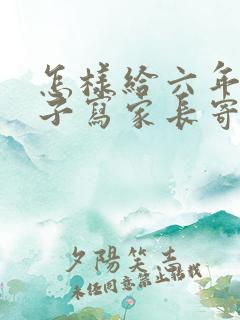 怎樣給六年
子寫家長寄
夕陽笑去
未經同意禁止轉載